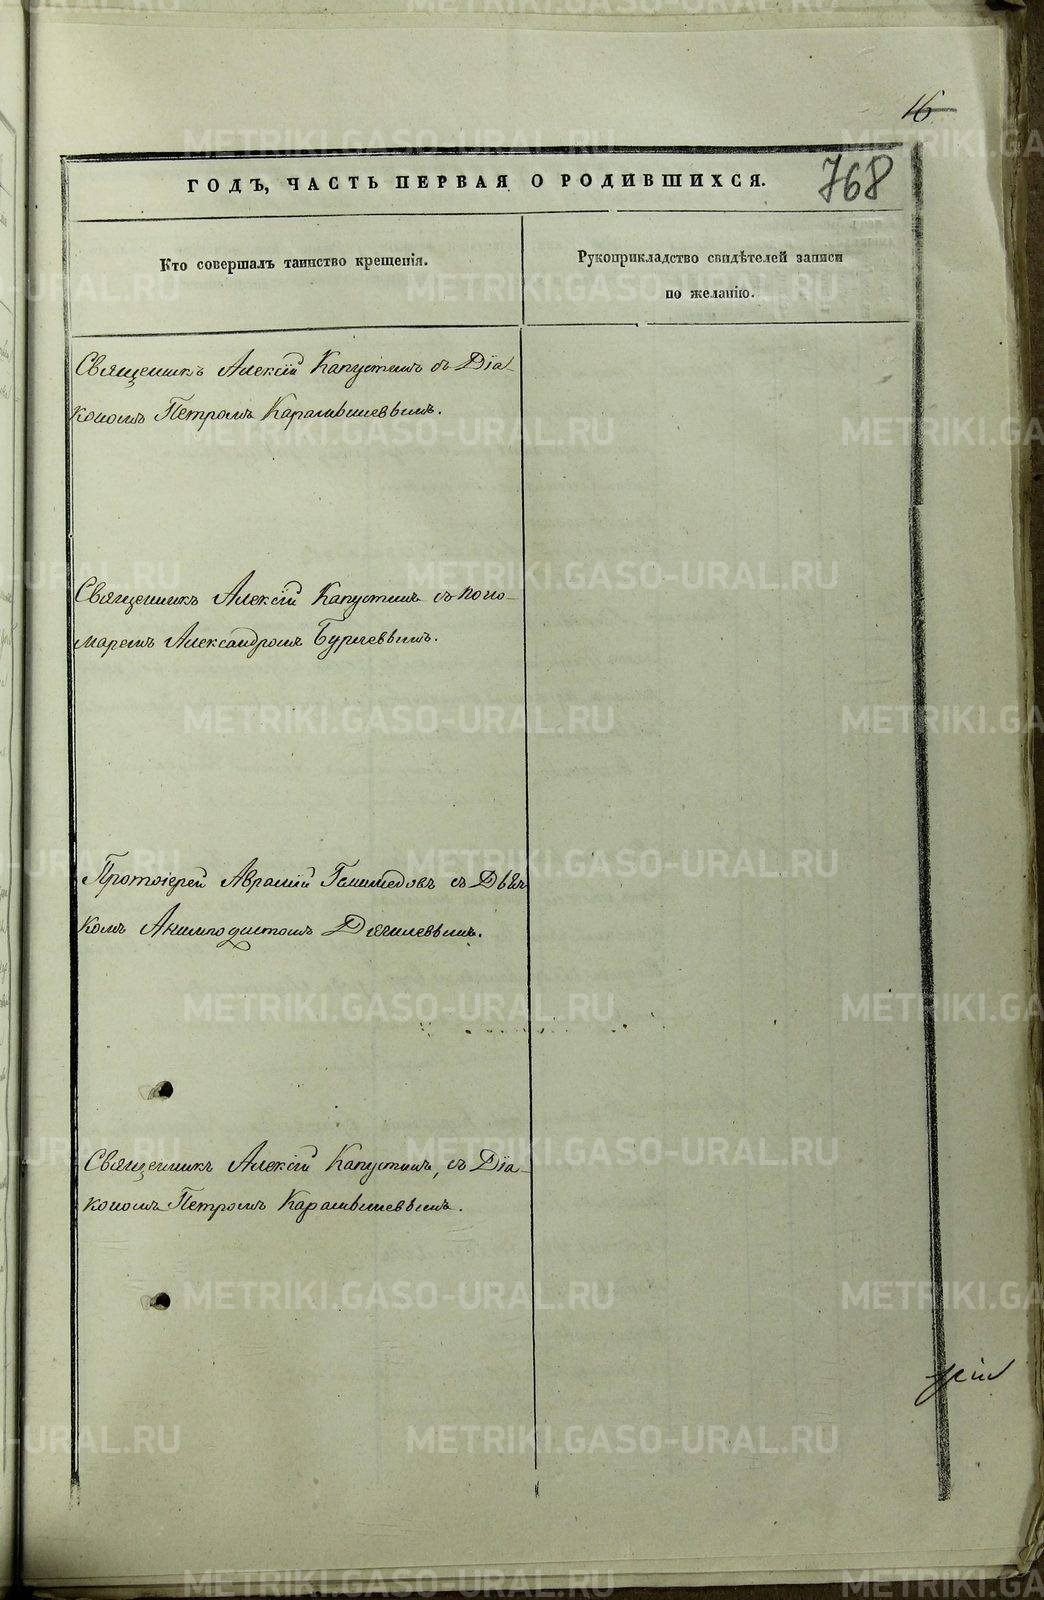 16
768
ГОДЪ, ЧАСТЬ ПЕРВАЯ О РОДИВШИХСЯ.
Кто совершалъ таинство крещенія.
Рукоприкладство свидѣтелей записи
по желанію.
Священникъ Алексій Капустинъ съ Діа-
кономъ Петромъ Карамышевымъ.
Священникъ Алексій Капустинъ съ поно-
маремъ Александромъ
Протоіерей Аврамій съ Дьяч-
комъ Анемподистомъ Дягилевымъ.
Священникъ Алексій Капустинъ, съ Діа-
кономъ Петромъ Карамышевымъ.
METRIKI.GASO-URAL.RU